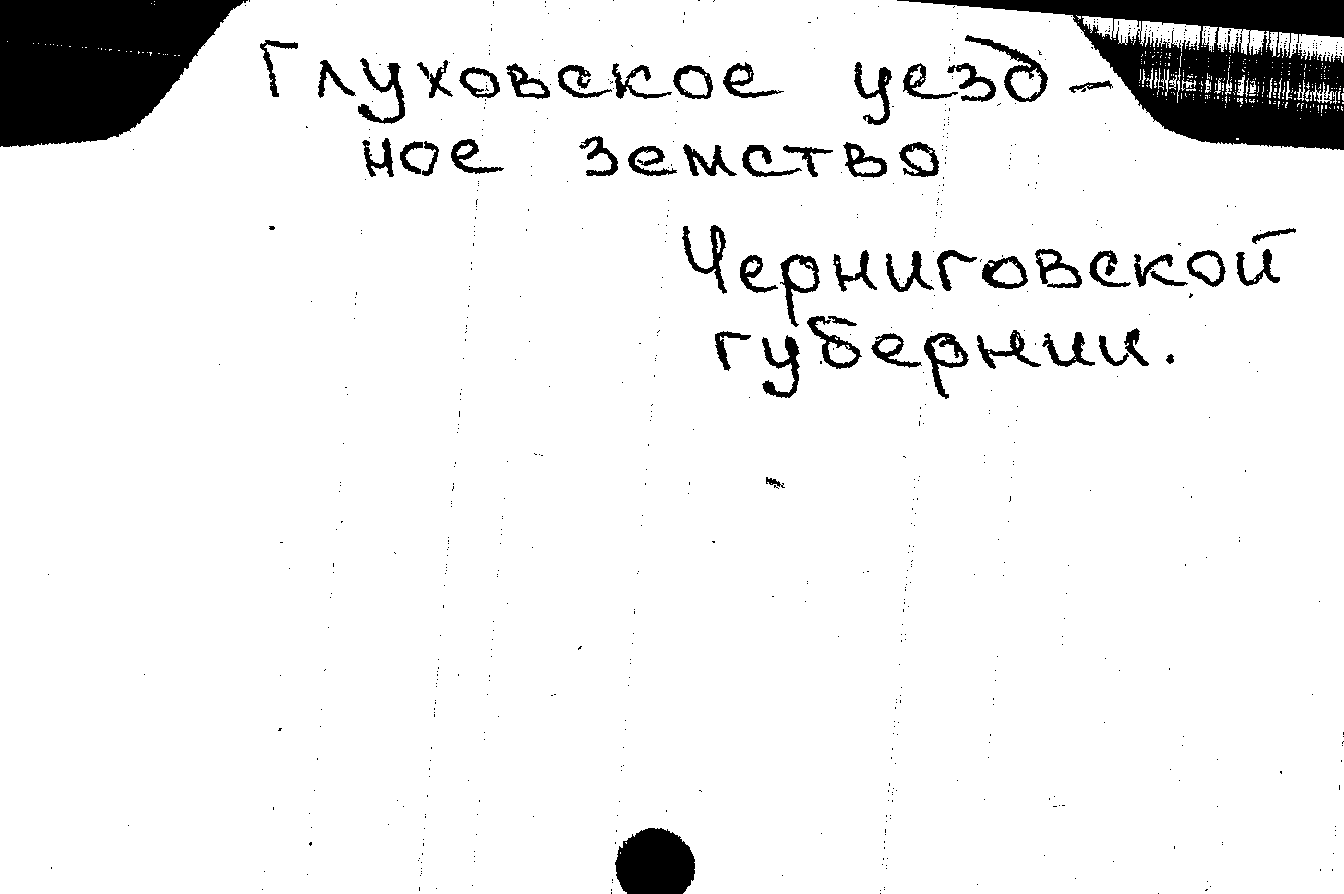 Глуховское уезд-
ное земство
Черниговской
губернии.